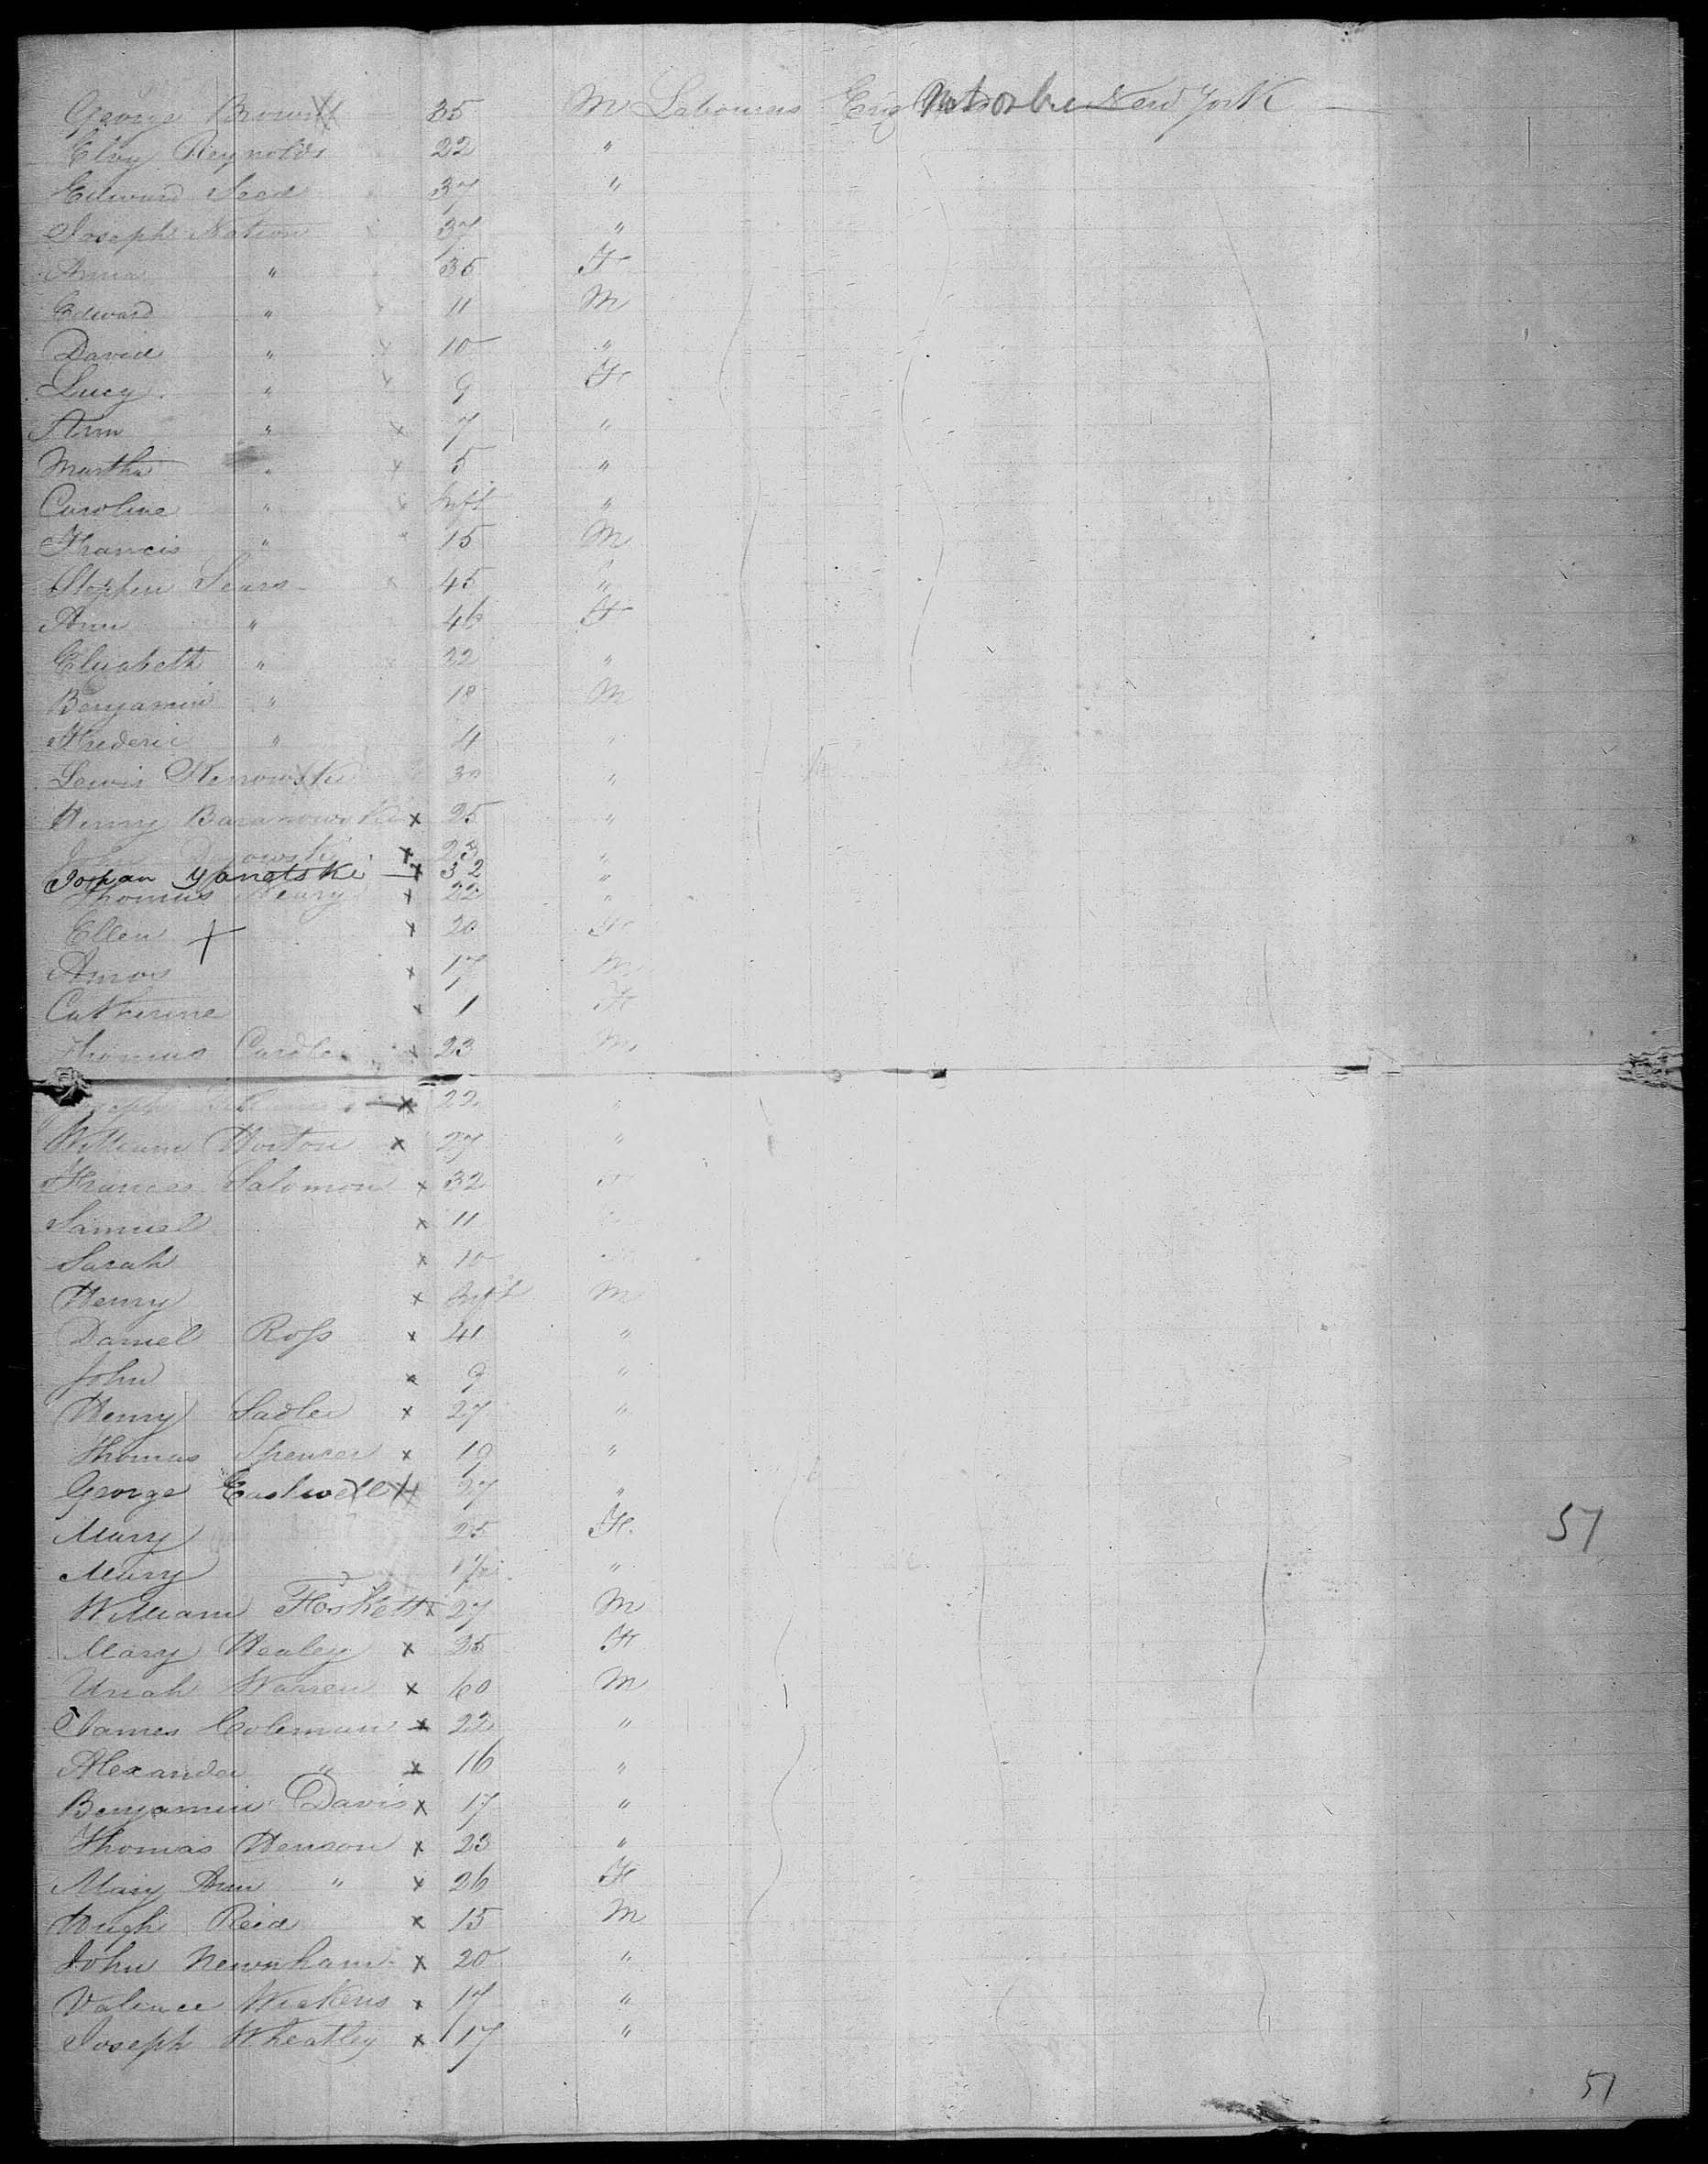 George Brown 35 M Labourers Eng New York
Elvy Reynolds 22 "
Edward Seed 37 "
Joseph Nation 37 "
Anna " 35 F
Edward " 11 M
David " 10 "
Lucy " 9 F
Ann " x 7 "
Martha " x 5 "
Caroline " x Inft "
Francis " 15 M
Stephen Sears 45 "
Ann " 46 F
Elizabeth " 22 "
Benjamin " 18 M
Frederic " 4 "
Lewis 30 "
Henry Baranowski x 25 "
John x 23 "
Johan Yanetski x 32 "
Thomas Henry x 22 "
Ellen x 20 F
Amos x 17 M
Catherine x 1 F
Thomas x 23 M
Joseph x 22 "
William Horton x 27 "
Frances Salomon x 32
Samuel x 11
Sarah x 10
Henry x Inft M
Daniel Roſs x 41 "
John x 9 "
Henry Sadler x 27 "
Thomas Spencer x 19 "
George Eastwell 27 "
Mary 25 F
Mary "
William Foskett x 27 M
Mary Healey x 25 F
Uriah Warren x 60 M
James Coleman x 22 "
Alexander " x 16 "
Benjamin Davis x 17 "
Thomas Henson x 23 "
Mary Ann " x 26 F
Hugh Reid x 15 M
John Newnham x 20 "
Valence Wickens x 17 "
Joseph Wheatley x 17 "
51
51